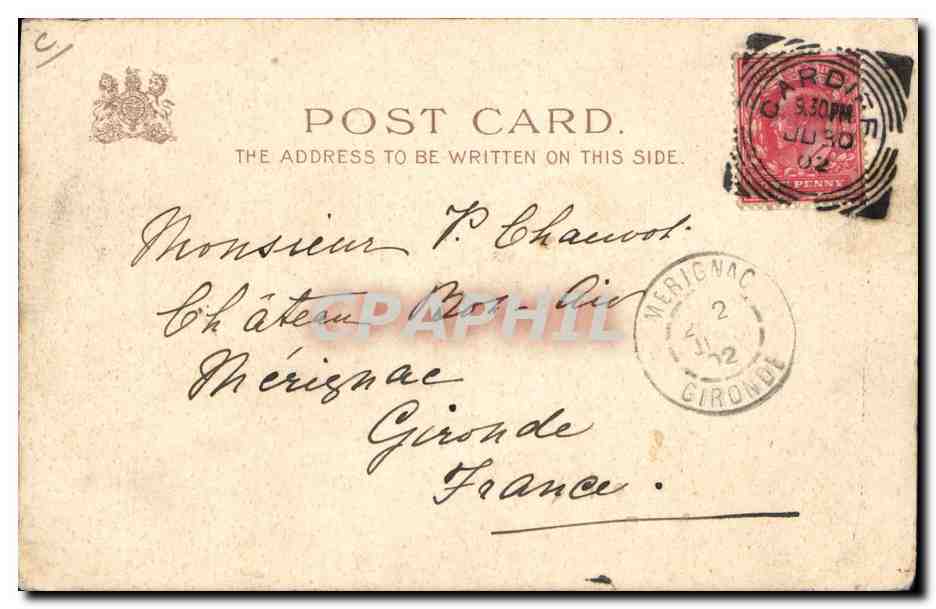 C/
POST CARD.
THE ADDRESS TO BE WRITTEN ON THIS SIDE.
CARDIFF
9.30PM
JU 30
02
PENNY
Monsieur P. Chauvot.
Château Bon-Air
Mérignac
Gironde
France.
MERIGNAC
2
02
GIRONDE
CPAPHIL